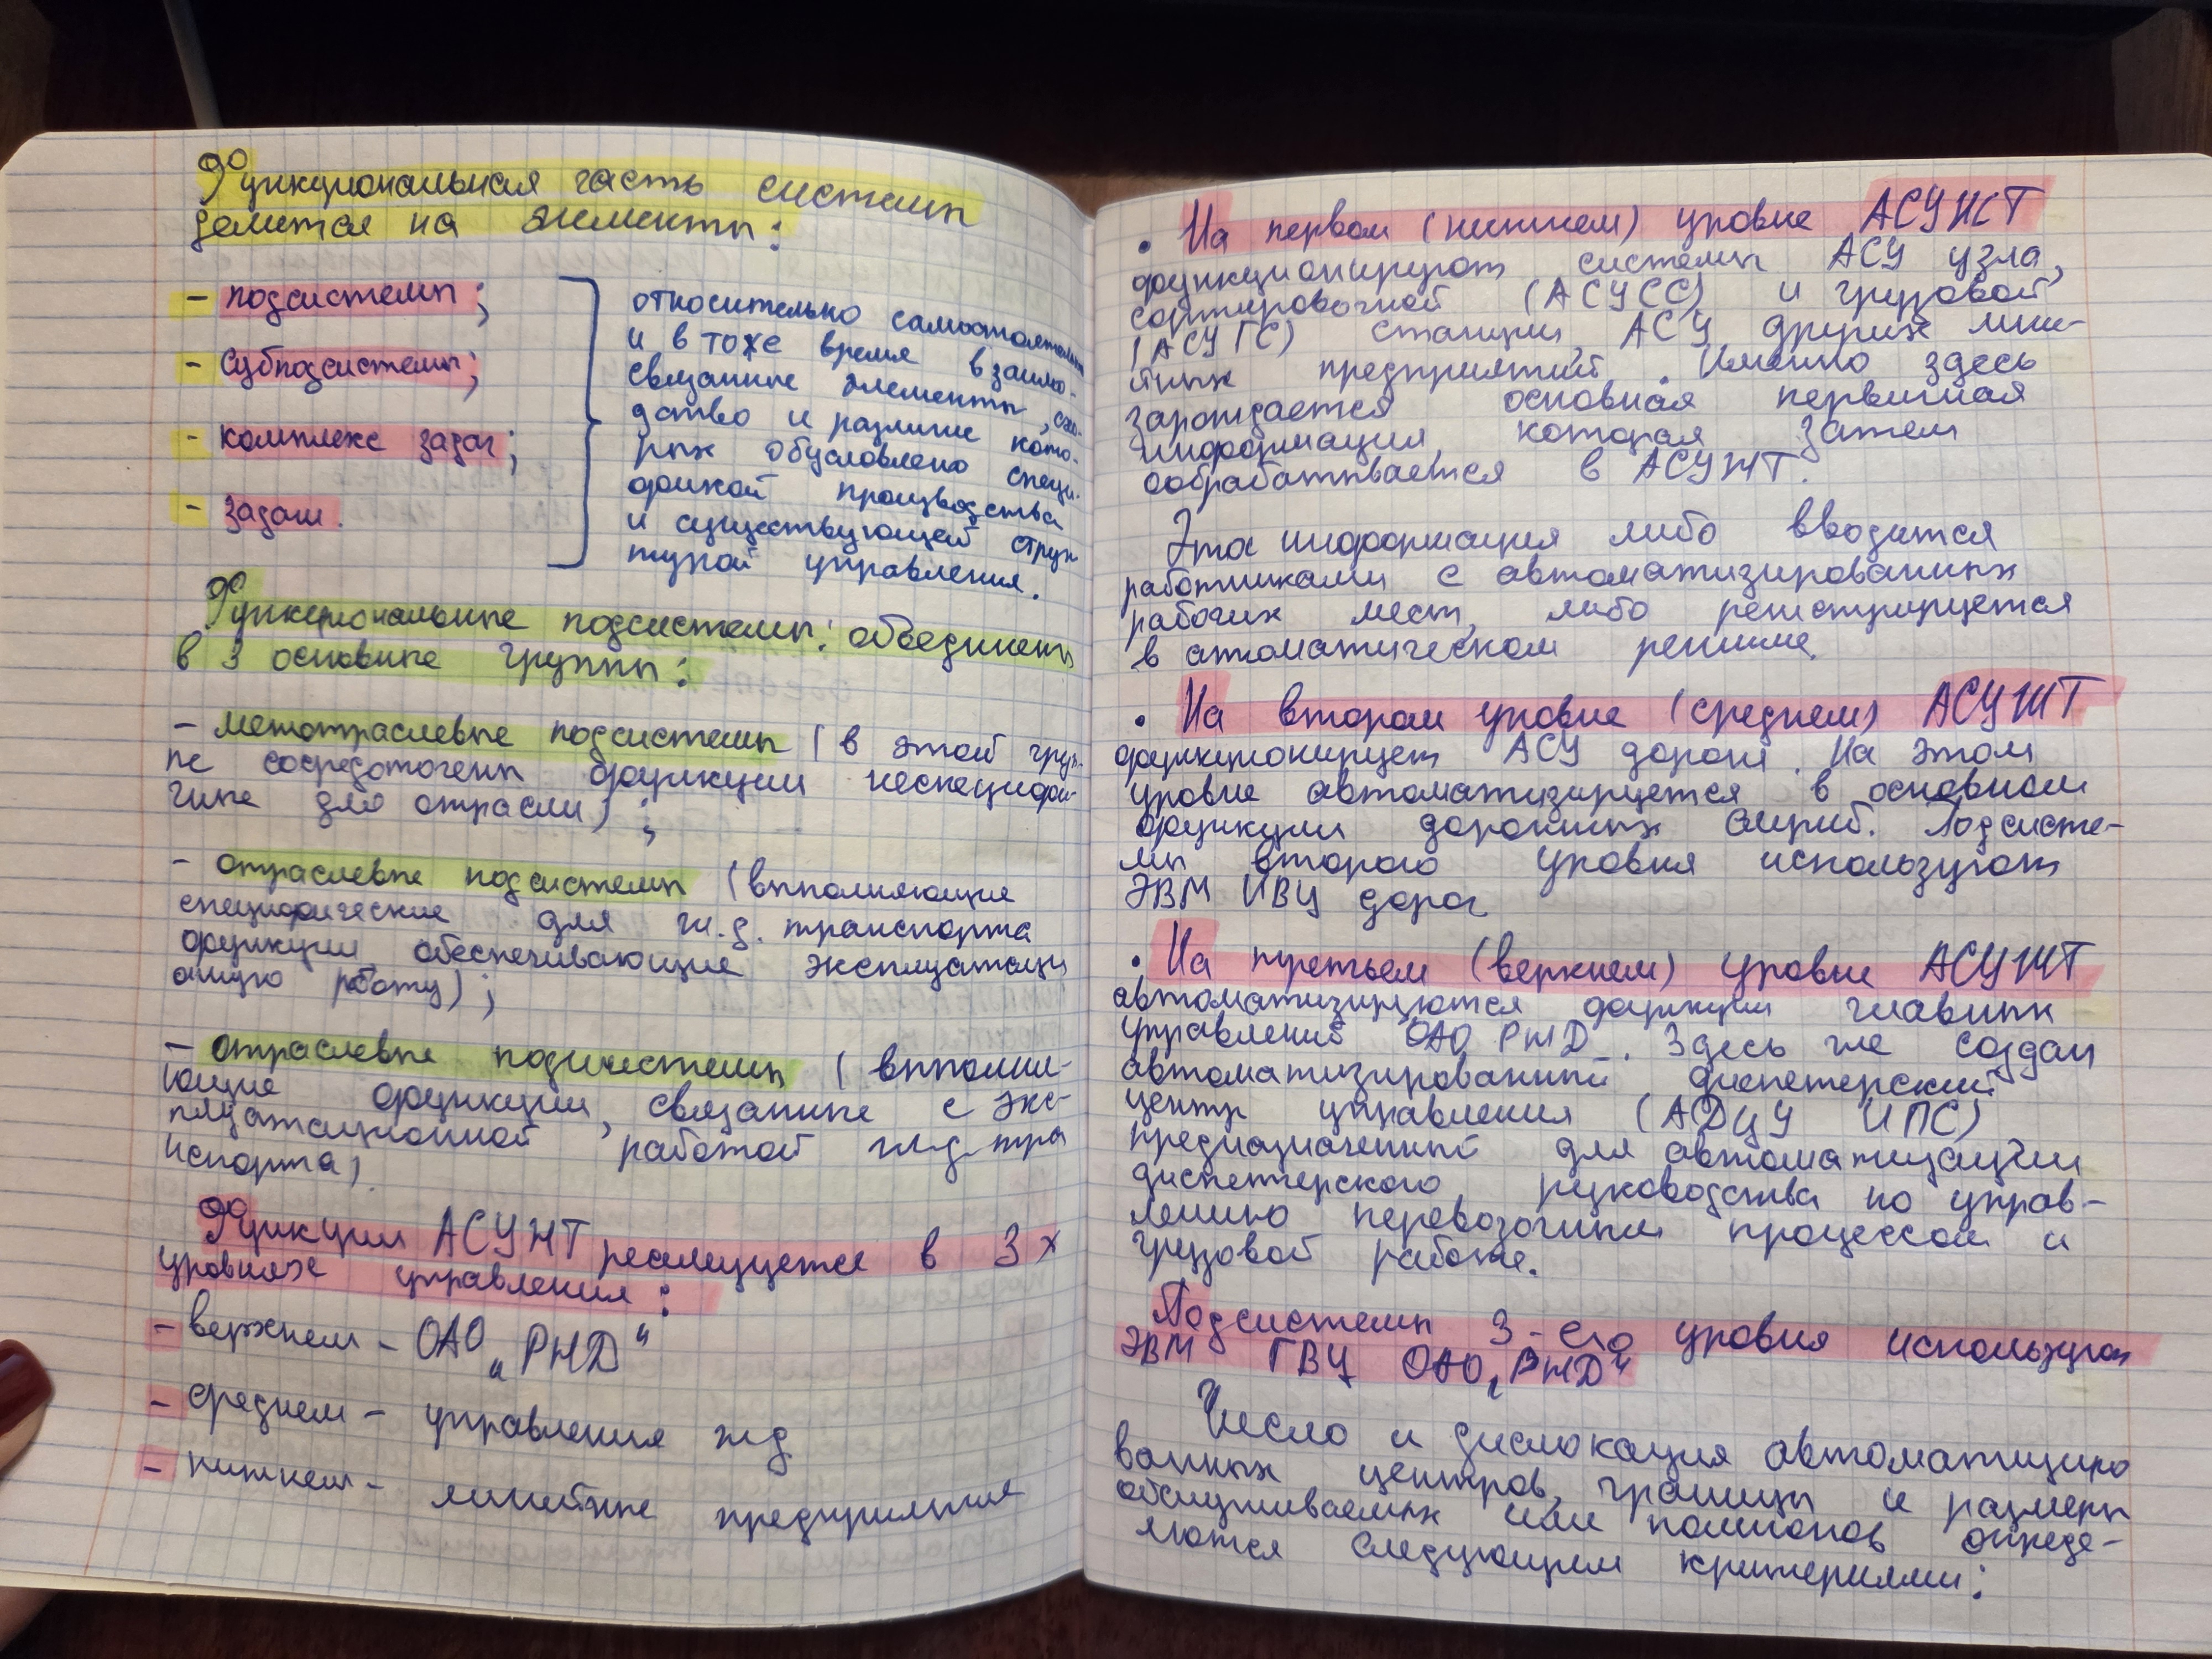 Функциональная часть системы
делится на элементы:
- подсистемы;
- субподсистемы;
- комплекс задач;
- задачи.
относительно самостоятельные
и в тоже время взаимо-
связанные элементы, схо-
дство и различие кото-
рых обусловлено специ-
фикой производства
и существующей струк
турой управления.
Функциональные подсистемы: объединены
в 3 основные группы:
- межотраслевые подсистемы (в этой груп-
пе сосредоточены функции неспецифи-
чные для отрасли);
- отраслевые подсистемы (выполняющие
специфические для ж.д. транспорта
функции обеспечивающие эксплуатаци
онную работу);
- отраслевые подсистемы (выполня-
ющие функции, связанные с экс-
плуатационной работой ж.д. тра
нспорта)
Функции АСУЖТ реализуется в 3х
уровнях управления:
- верхнем - ОАО „РЖД“
- среднем - управления жд
- нижнем - линейные предприятия
• На первом (нижнем) уровне АСУЖТ
функционируют системы АСУ узла,
сортировочной (АСУСС) и грузовой
(АСУГС) станции, АСУ других лине-
йных предприятий. Именно здесь
зарождается основная первичная
информация, которая затем
обрабатывается в АСУЖТ.
Эта информация либо вводится
работниками с автоматизированных
рабочих мест, либо регистрируется
в атоматическом режиме.
• На втором уровне (среднем) АСУЖТ
функционирует АСУ дороги. На этом
уровне автоматизируется в основном
функции дорожных служб. Подсисте-
мы второго уровня используют
ЭВМ ИВЦ дорог
• На третьем (верхнем) уровне АСУЖТ
автоматизируются функции главных
управлений ОАО РЖД. Здесь же создан
автоматизированный диспетчерский
центр управления (АДЦУ ИПС)
предназначенный для автоматизации
диспетчерского руководства по управ-
лению перевозочным процессом и
грузовой работе.
Подсистемы 3-его уровня используют
ЭВМ ГВЦ ОАО „РЖД“
Число и дислокация автоматизиро
ванных центров, границы и размеры
обслуживаемых ими полигонов опреде-
ляются следующими критериями: